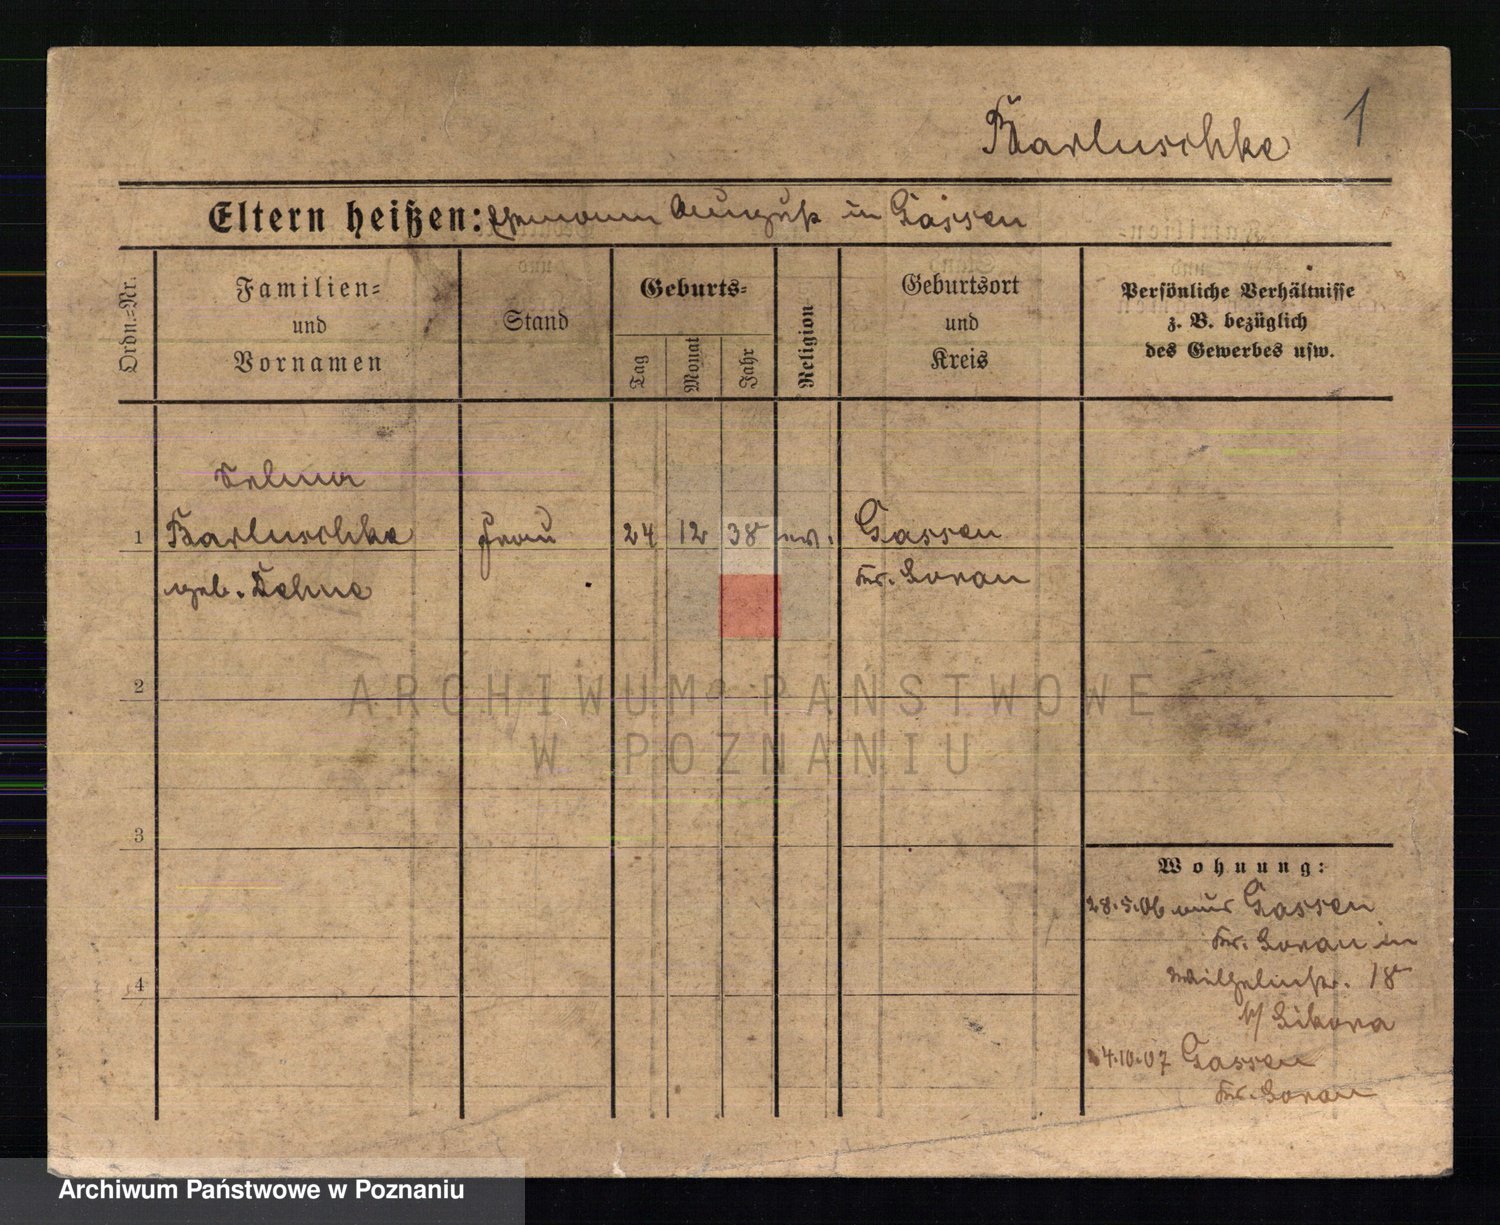 Karluschke 1
Eltern heißen: Ehemann August in Gassen
Ordn.-Nr.
Familien-
und
Vornamen
Stand
Geburts-
Tag
Monat
Jahr
Religion
Geburtsort
und
Kreis
Persönliche Verhältnisse
z. B. bezüglich
des Gewerbes usw.
Selma
1 Karluschke Frau 24 12 38 ev. Gassen
geb. Dehne Kr. Sorau
2
3
4
Wohnung:
28.5.06 aus Gassen
Kr. Sorau in
Wilhelmstr. 18
b/ Sikora
4.10.07 Gassen
Kr. Sorau
ARCHIWUM PAŃSTWOWE
W POZNANIU
Archiwum Państwowe w Poznaniu